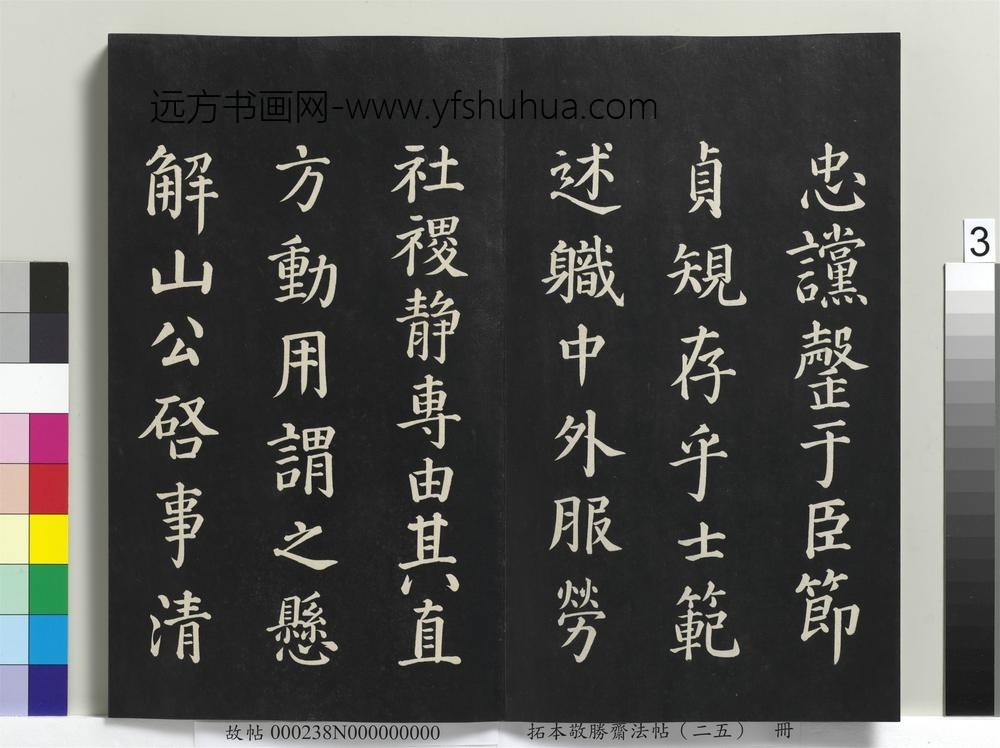 忠讜罄于臣節
貞䂓存乎士範
述軄中外服勞
社禝静専由其直
方動用謂之懸
解山公啓事清
远方书画网-www.yfshuhua.com
3
故帖 000238N000000000
拓本敬勝齋法帖（二五） 冊